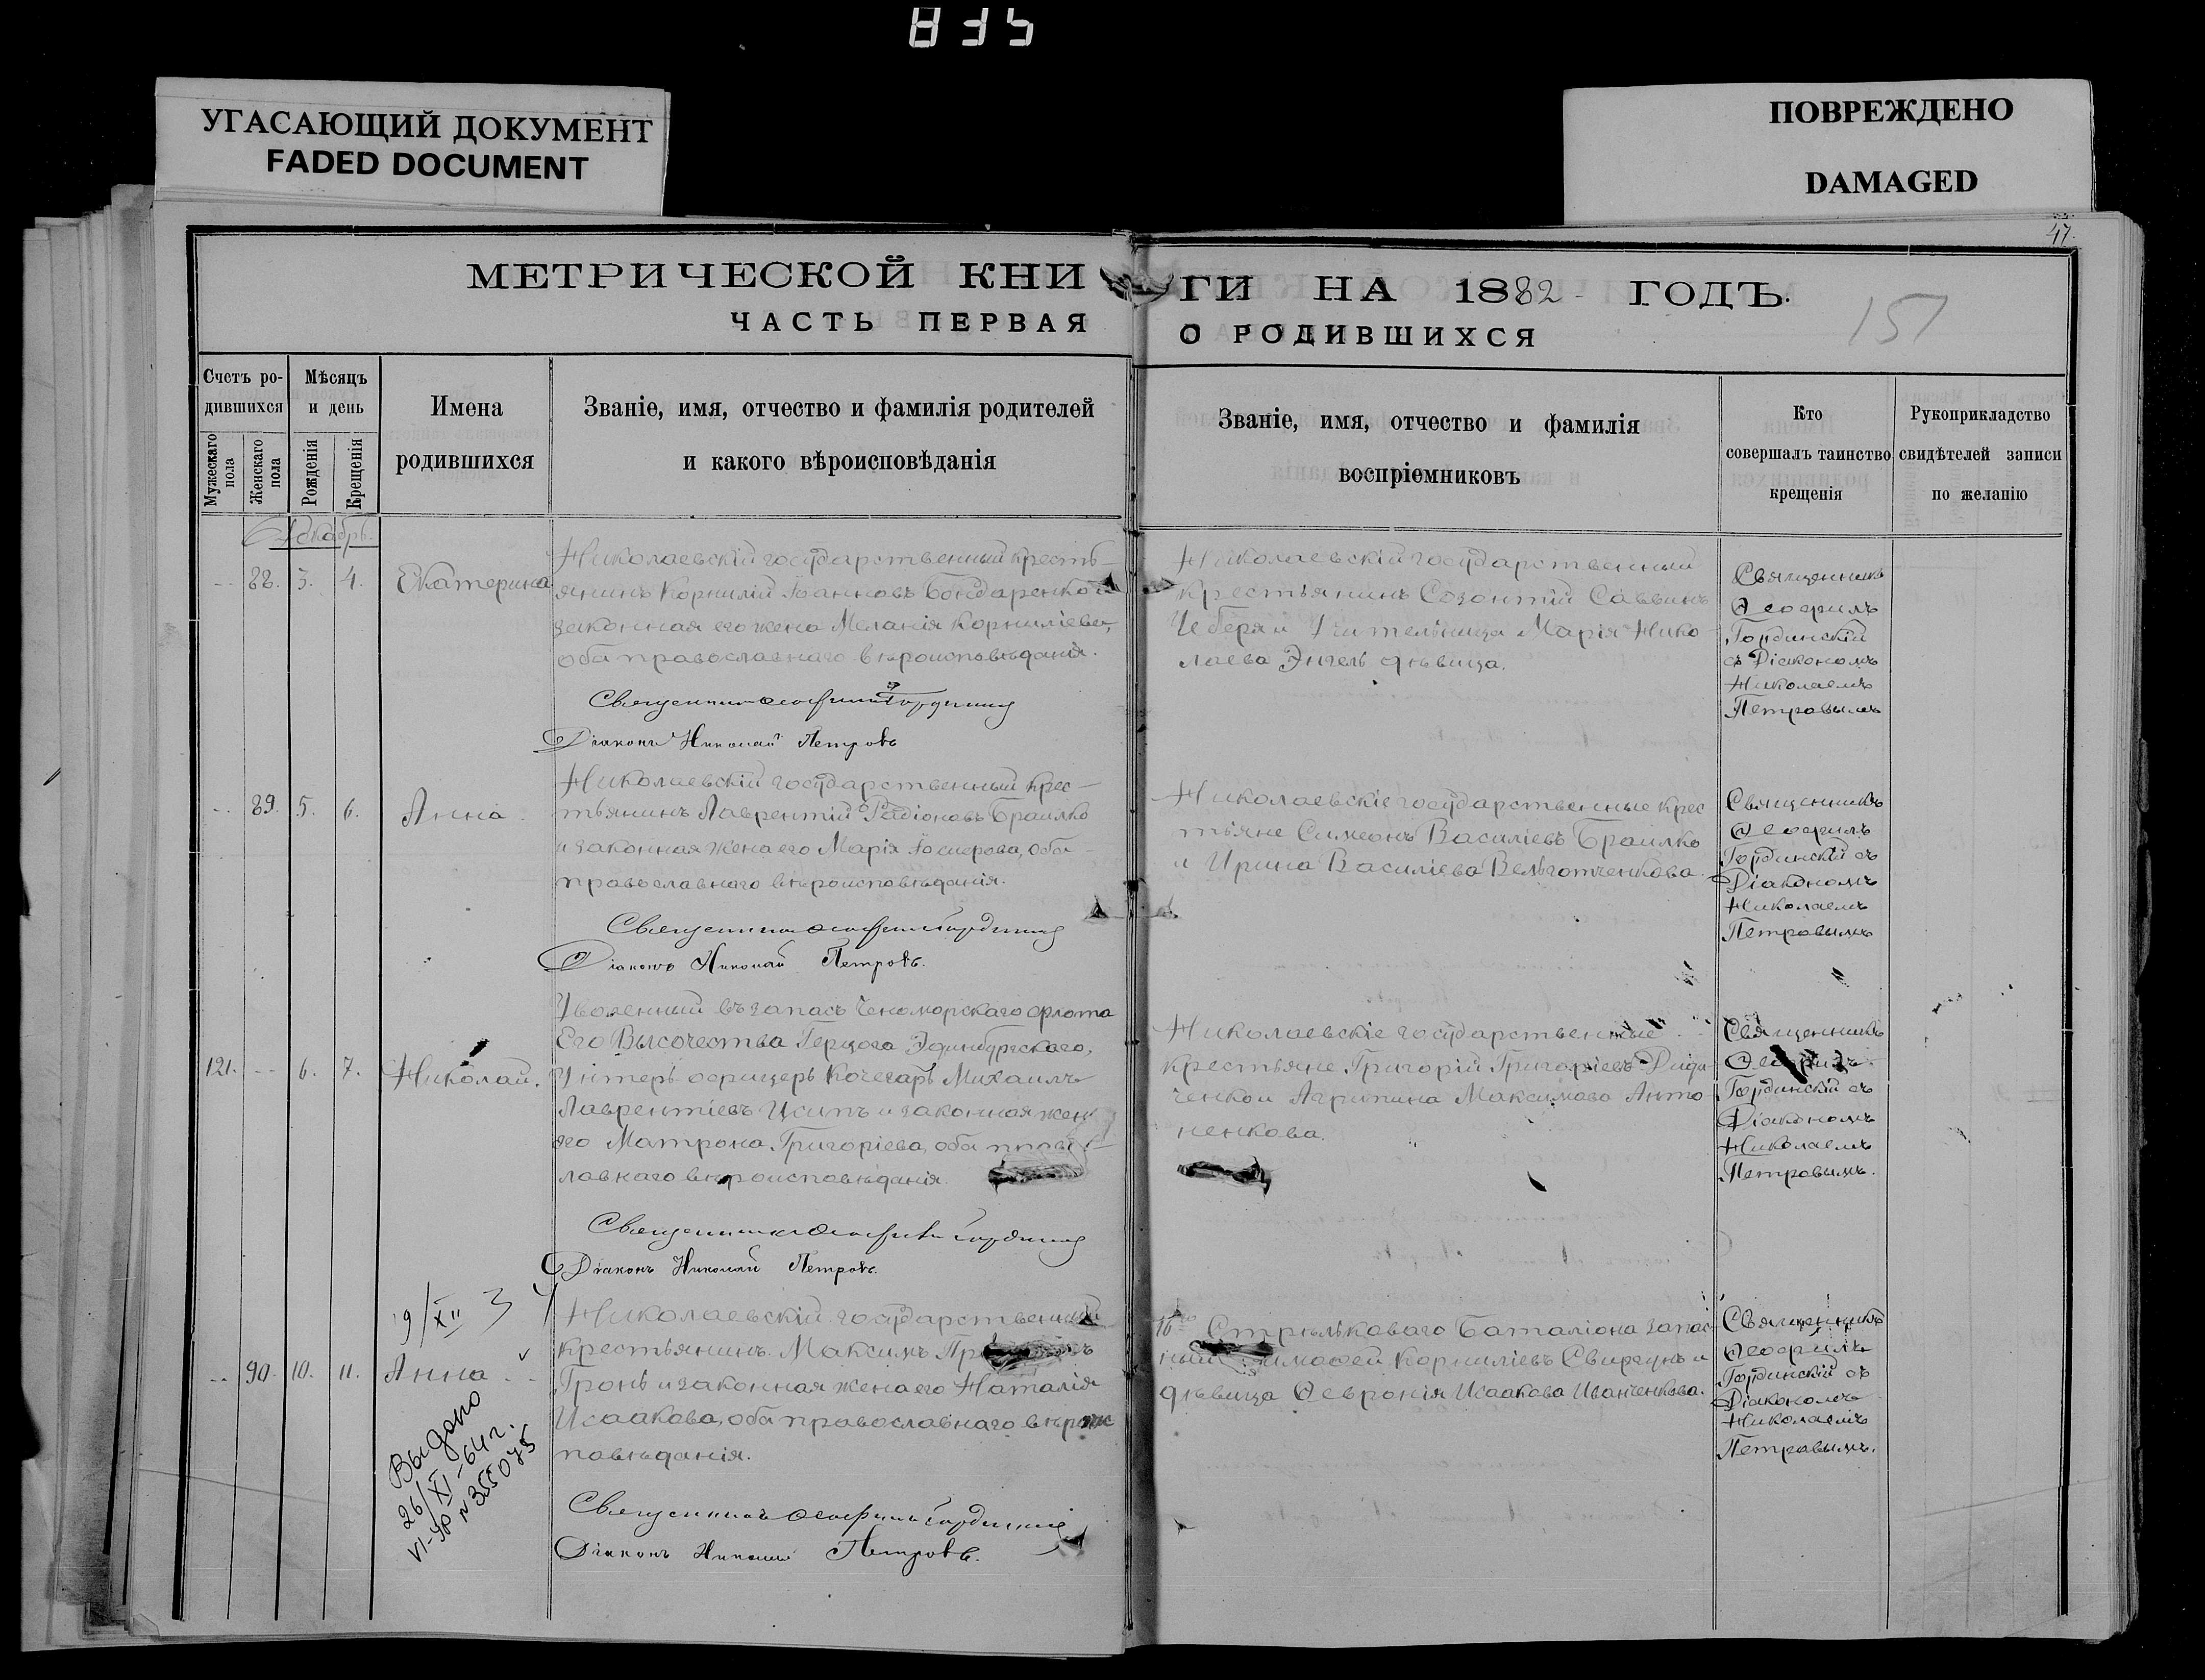 835
УГАСАЮЩИЙ ДОКУМЕНТ
FADED DOCUMENT
ПОВРЕЖДЕНО
DAMAGED
47.
МЕТРИЧЕСКОЙ КНИ
ГИ НА 1882 ГОДЪ.
151
ЧАСТЬ ПЕРВАЯ
О РОДИВШИХСЯ
Счетъ ро-
дившихся
Мужескаго
пола
Женскаго
пола
Мѣсяцъ
и день
Рожденія
Крещенія
Имена
родившихся
Званіе, имя, отчество и фамилія родителей
и какого вѣроисповѣданія
Званіе, имя, отчество и фамилія
воспріемниковъ
Кто
совершалъ таинство
крещенія
Рукоприкладство
свидѣтелей записи
по желанію
Декабрь.
88. 3. 4. Екатерина
Николаевскій государственный кресть-
янинъ Корнилій Іоанновъ Бондаренко и
законная его жена Меланія Корниліева,
оба православнаго вѣроисповѣданія.
Священникъ Ѳеофилъ Гординскій
Діаконъ Николай Петровъ
Николаевскій государственный
крестьянинъ Созонтій Саввинъ
Чеберя и Учительница Марія Нико
лаева Энгель дѣвица.
Священникъ
Ѳеофилъ
Гординскій
съ Діакономъ
Николаемъ
Петровымъ
89. 5. 6. Анна.
Николаевскій государственный крес-
тьянинъ Лаврентій Радіоновъ Браилко
и законная жена его Марія, оба
православнаго вѣроисповѣданія.
Священникъ Ѳеофилъ Гординскій
Діаконъ Николай Петровъ.
Николаевскіе государственные крес
тьяне Симеонъ Василіевъ Браилко
и Ирина Василіева
Священникъ
Ѳеофилъ
Гординскій съ
Діакономъ
Николаемъ
Петровымъ
121. -- 6. 7. Николай.
Уволенный въ запасъ Черноморскаго флота
Его Высочества Герцога Эдинбургскаго,
Унтеръ офицеръ Кочегаръ Михаилъ
Лаврентіевъ и законная жена
его Матрона Григоріева, оба правос-
лавнаго вѣроисповѣданія.
Священникъ Ѳеофилъ Гординскій
Діаконъ Николай Петровъ.
Николаевскіе государственные
крестьяне Григорій Григоріевъ Диди
ченко и Агрипина Максимова Анто
ненкова.
Священникъ
Ѳеофилъ
Гординскій съ
Діакономъ
Николаемъ
Петровымъ.
9/XII
-- 90. 10. 11. Анна
Николаевскій государственный
крестьянинъ Максимъ
Гронь и законная жена его Наталія
Исаакова, оба православнаго вѣроис
повѣданія.
Священникъ Ѳеофилъ Гординскій
Діаконъ Николай Петровъ.
16го Стрѣлковаго Баталіона запас
ный Корниліевъ Свиргунъ и
дѣвица Ѳевронія Исаакова Иванченкова.
Священникъ
Ѳеофилъ
Гординскій съ
Діакономъ
Николаемъ
Петровымъ.
Выдано
26/XI-64 г.
№ 355075